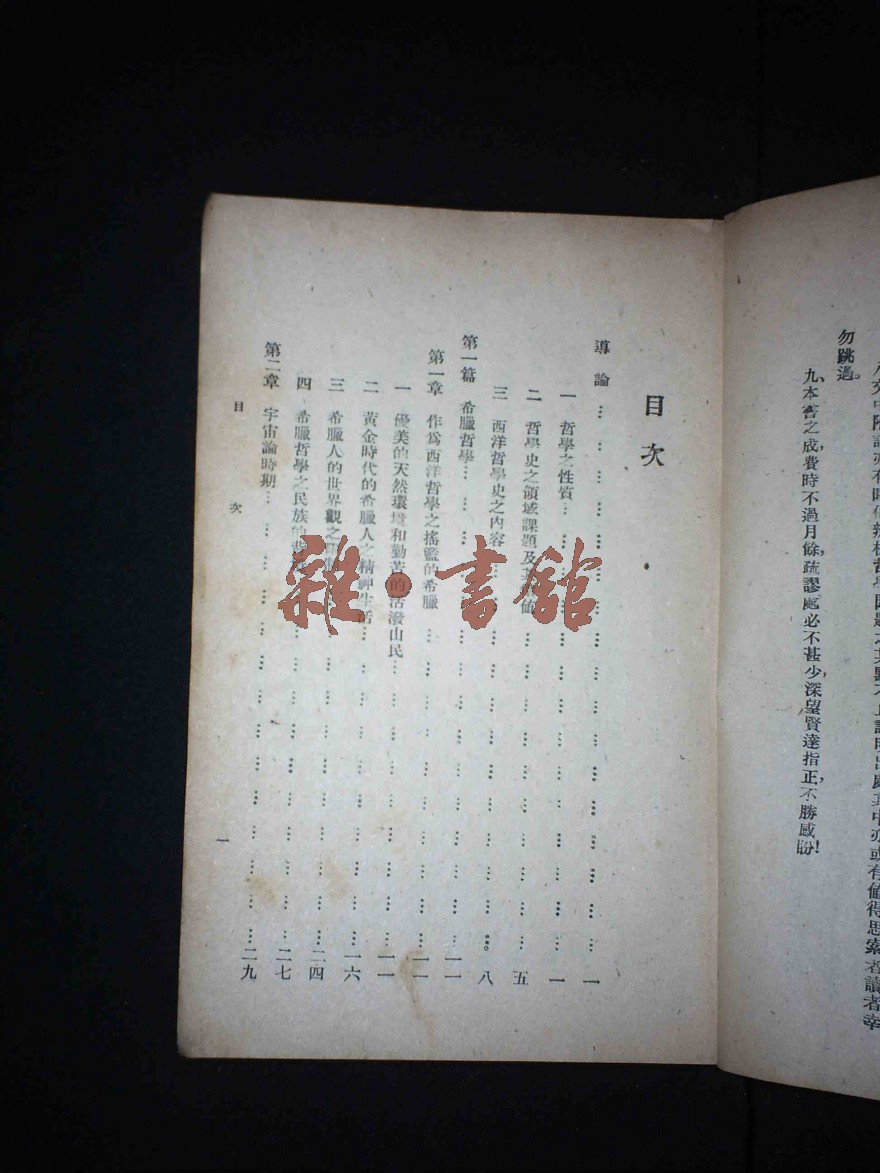 勿跳過。
九、本書之成，費時不過月餘，疏謬處必不甚少，深望賢達指正，不勝感盼！
目次
導論 … … … … … … … … … … … … … 一
一 哲學之性質 … … … … … … … … … … 一
二 哲學史之領域課題及 … … … … … … … 五
三 西洋哲學史之內容 … … … … … … … … 八
第一篇 希臘哲學 … … … … … … … … … 一一
第一章 作為西洋哲學之搖籃的希臘 … … … … … 一一
一 優美的天然環境和勤苦的活潑山民 … … … … 一一
二 黃金時代的希臘人之精神生活 … … … … … 一六
三 希臘人的世界觀之 … … … … … … … … 二四
四 希臘哲學之民族的 … … … … … … … … 二七
第二章 宇宙論時期 … … … … … … … … … 二九
目次
一
雜·書館